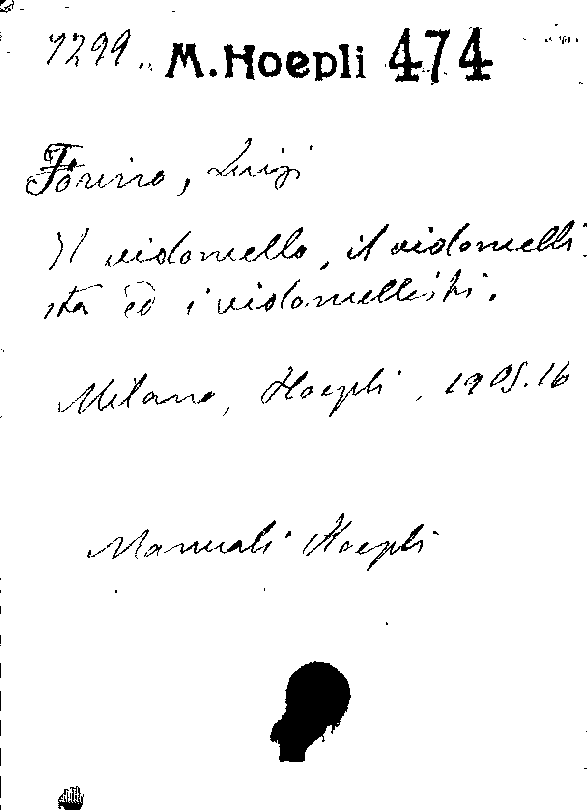 7299 M. Hoepli 474
Forino, Luigi
Il violoncello, il violoncelli
sta ed i violoncellisti.
Milano, Hoepli, 1905. 16
Manuali Hoepli